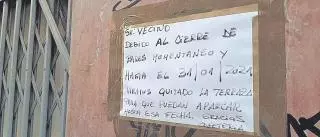 SR. VECINO
DEBIDO AL CIERRE DE
BARES MOMENTANEO Y
HASTA EL 31/01/2021
HEMOS QUITADO LA TERRAZA
PARA QUE PUEDAN APARCAR
HASTA ESA FECHA. GRACIAS